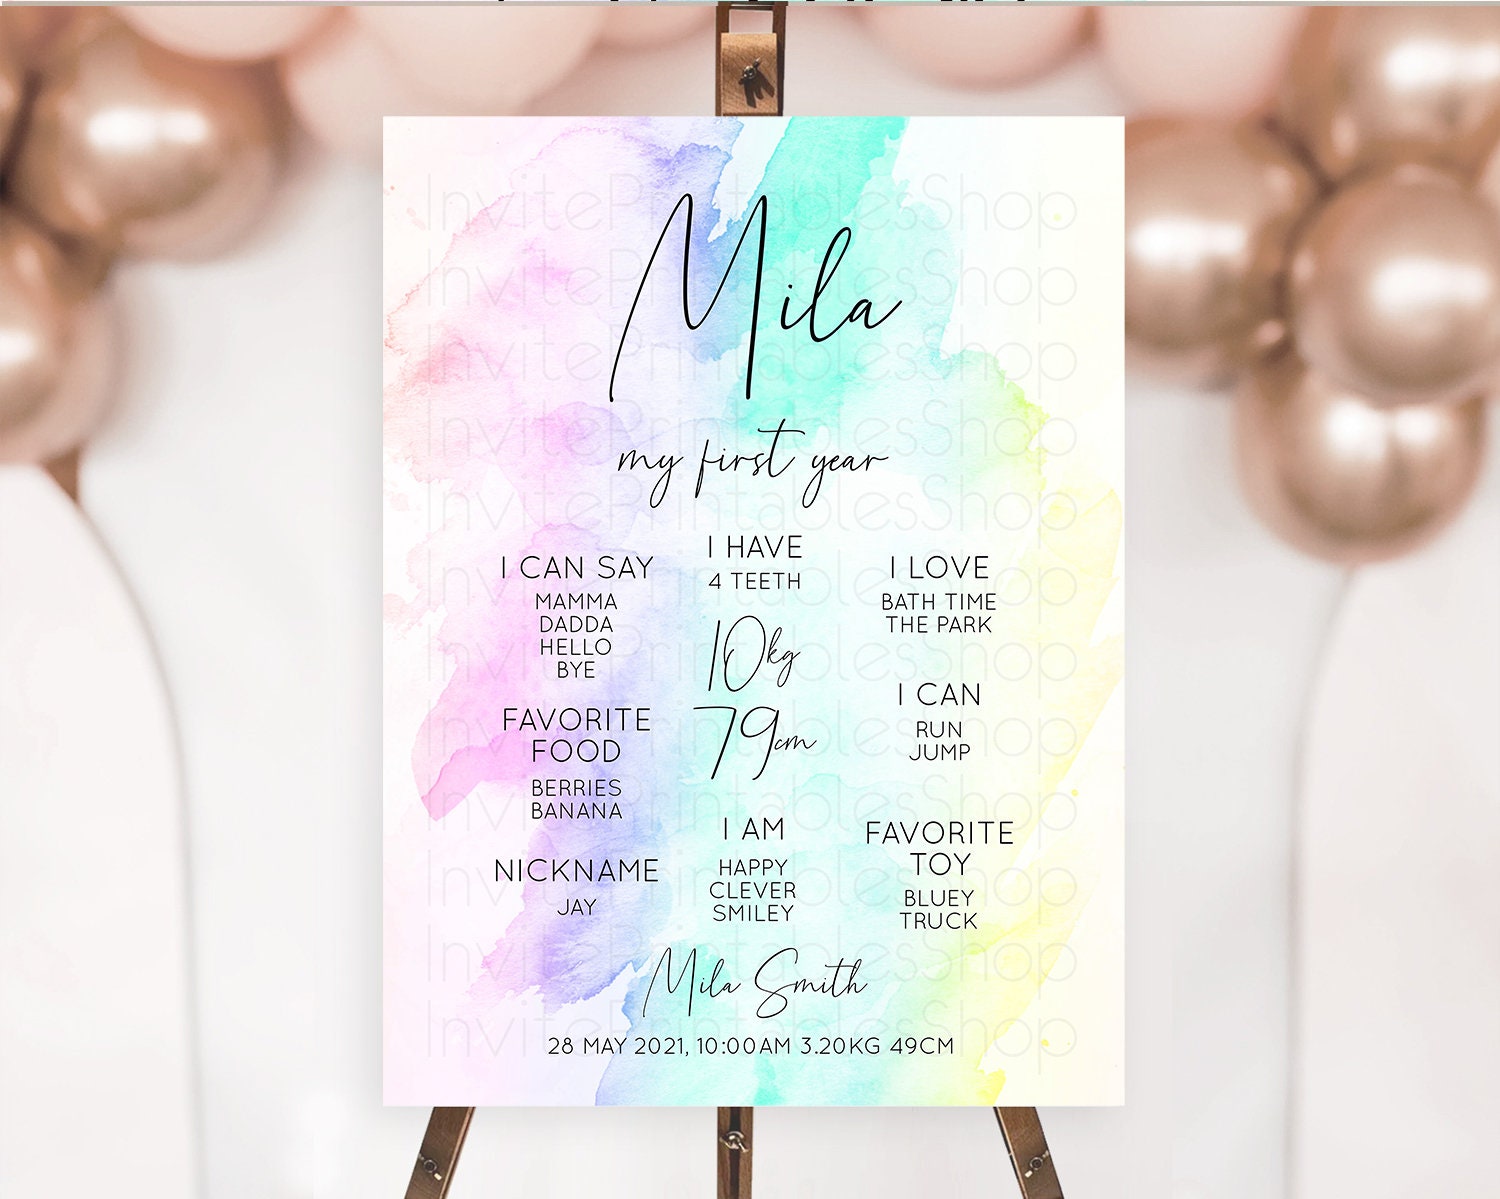 Mila
my first year
I CAN SAY
MAMMA
DADDA
HELLO
BYE
FAVORITE
FOOD
BERRIES
BANANA
NICKNAME
JAY
I HAVE
4 TEETH
10kg
79cm
I AM
HAPPY
CLEVER
SMILEY
I LOVE
BATH TIME
THE PARK
I CAN
RUN
JUMP
FAVORITE
TOY
BLUEY
TRUCK
Mila Smith
28 MAY 2021, 10:00AM 3.20KG 49CM
InvitePrintablesShop
InvitePrintablesShop
InvitePrintablesShop
InvitePrintablesShop
InvitePrintablesShop
InvitePrintablesShop
InvitePrintablesShop
InvitePrintablesShop
InvitePrintablesShop
InvitePrintablesShop
InvitePrintablesShop
InvitePrintablesShop